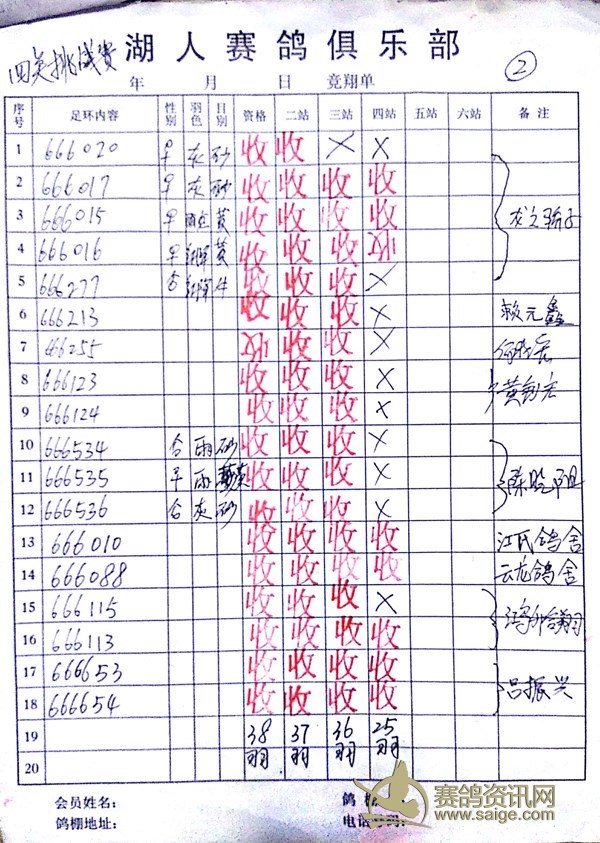 四关挑战费 湖人赛鸽俱乐部
年 月 日 竞翔单 ②
序号 足环内容 性别 羽色 目别 资格 二站 三站 四站 五站 六站 备注
1 666020 早 灰 砂 收 收 × ×
2 666017 早 灰 砂 收 收 收 收
3 666015 早 黄 收 收 收 收
4 666016 早 黄 收 收 收 收
5 666277 收 收 收 ×
6 666213 收 收 收 × 赖元鑫
7 466255 收 收 收 ×
8 666123 收 收 收 ×
9 666124 收 收 收 ×
10 666534 雨 砂 收 收 收 ×
11 666535 雨 黄 收 收 收 ×
12 666536 灰 砂 收 收 收 ×
13 666010 收 收 收 收 江氏鸽舍
14 666088 收 收 收 收 云龙鸽舍
15 666115 收 收 收 ×
16 666113 收 收 收 收
17 666653 收 收 收 收
18 666654 收 收 收 收 吕振兴
19 38 37 36 25
20 羽 羽 羽 羽
会员姓名： 鸽
鸽棚地址： 电话号码：
赛鸽资讯网
www.saige.com